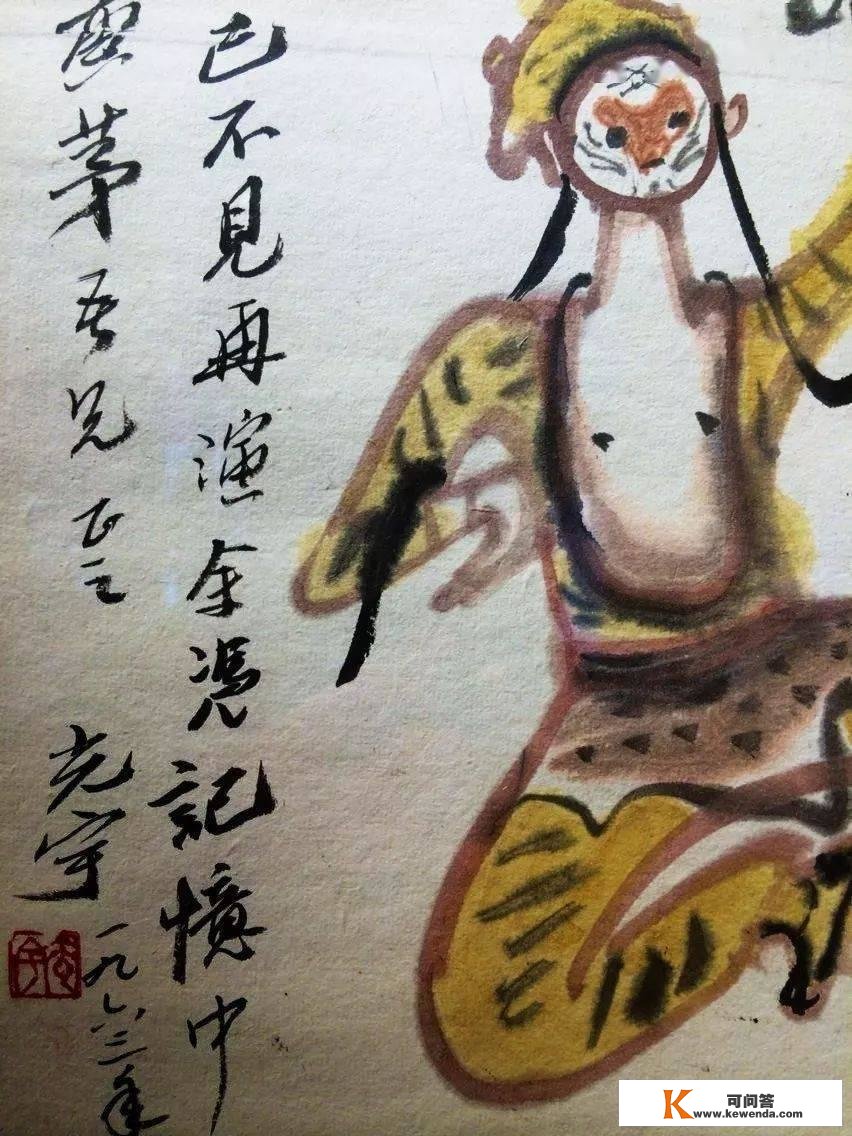 已不見再演余憑記憶中
茅吾兄正之
光宇
一九六三年
可问答
www.kewenda.com